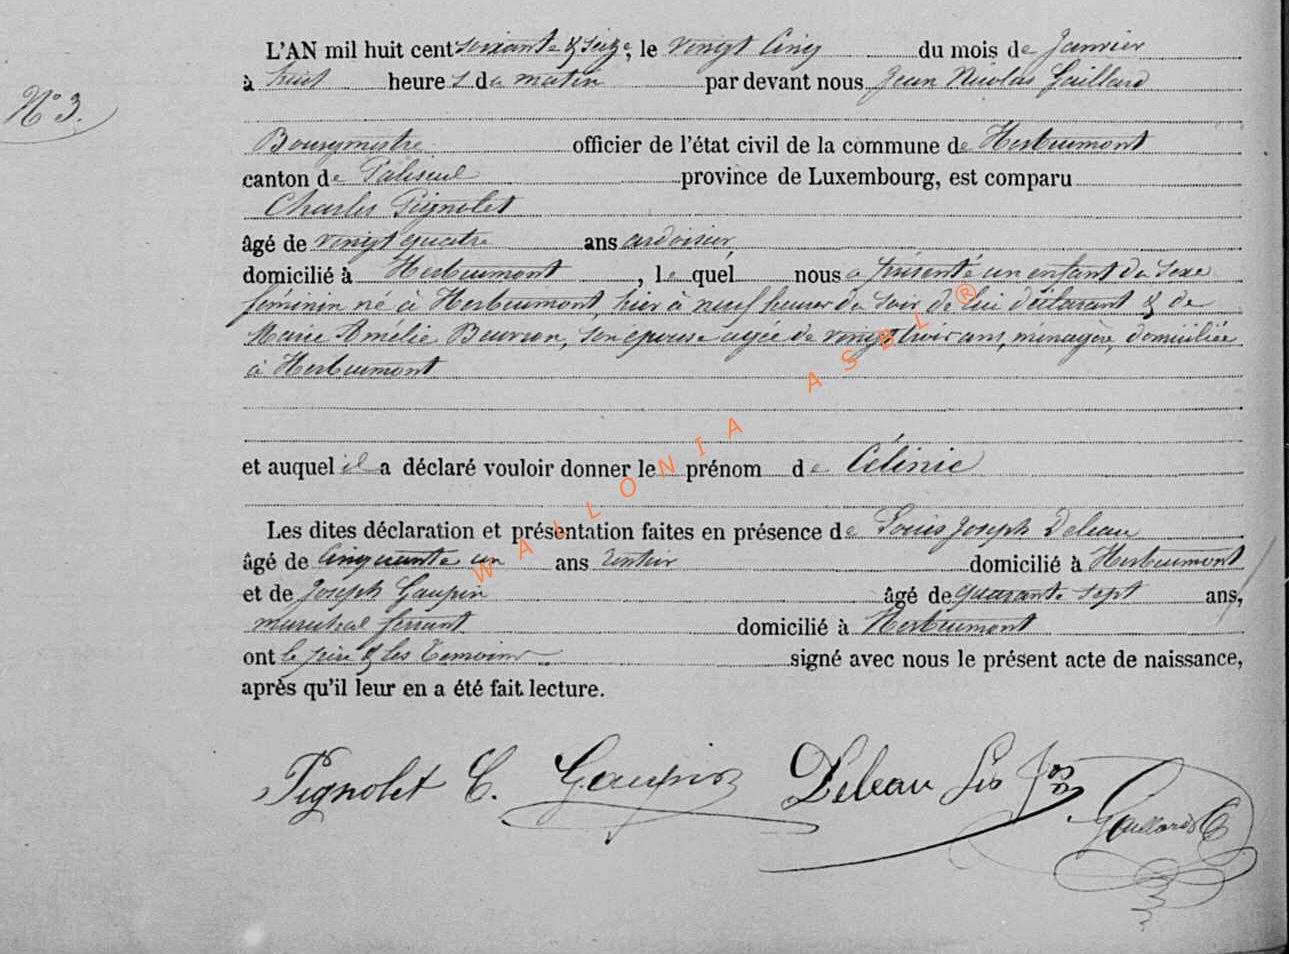 L'AN mil huit cent soixante & seize, le vingt Cinq du mois de Janvier
N° 3.
à huit heures du matin par devant nous Jean Nicolas Gaillard
Bourgmestre officier de l'état civil de la commune de Herbeumont
canton de Paliseul province de Luxembourg, est comparu
Charles Pignolet
âgé de vingt quatre ans ardoisier
domicilié à Herbeumont, lequel nous a présenté un enfant du sexe
féminin né à Herbeumont, hier à neuf heures du soir, de lui déclarant & de
Marie Amélie Bauvson, son épouse agée de vingt trois ans, ménagère, domiciliée
à Herbeumont
et auquel il a déclaré vouloir donner le prénom de Célinie
Les dites déclaration et présentation faites en présence de Louis Joseph Deleau
âgé de Cinquante un ans rentier domicilié à Herbeumont
et de Joseph Gaupin âgé de quarante sept ans,
marechal ferrant domicilié à Herbeumont
ont le père & les témoins signé avec nous le présent acte de naissance,
après qu'il leur en a été fait lecture.
Pignolet C. Gaupin Deleau Lis Jos
Gaillard
WALLONIA ASBL ®